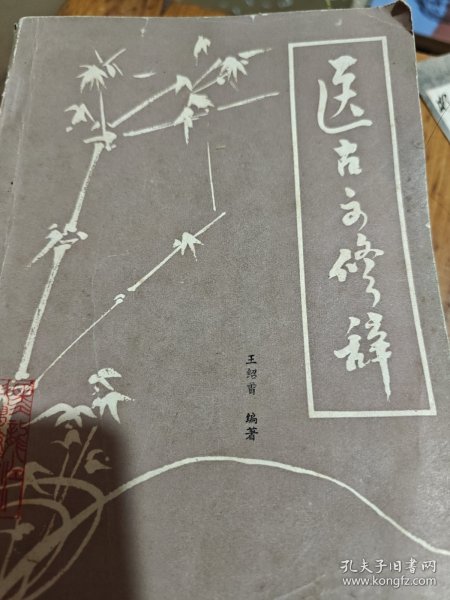 医古文修辞
王绍霄 编著
孔夫子旧书网
www.kongfz.com